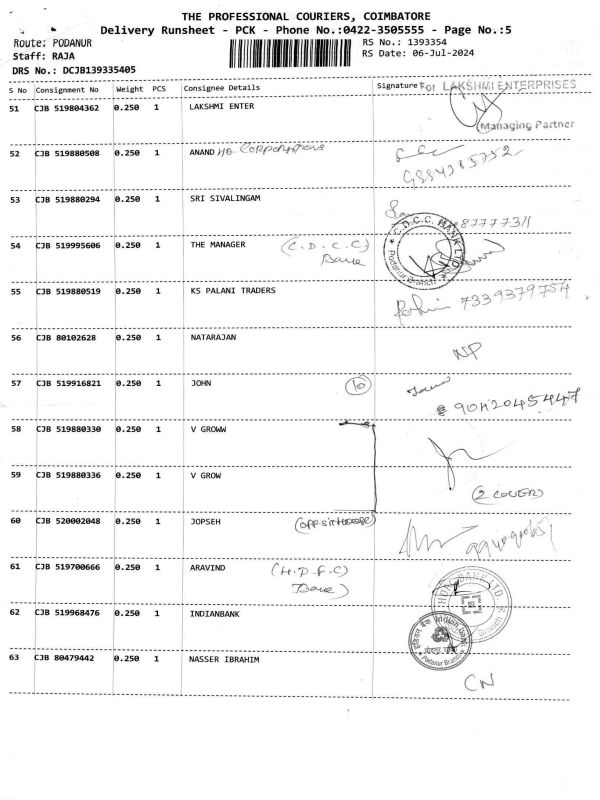 THE PROFESSIONAL COURIERS, COIMBATORE
Delivery Runsheet - PCK - Phone No.:0422-3505555 - Page No.:5
Route: PODANUR RS No.: 1393354
Staff: RAJA RS Date: 06-Jul-2024
DRS No.: DCJB139335405
S No Consignment No Weight PCS Consignee Details Signature For LAKSHMI ENTERPRISES
51 CJB 519804362 0.250 1 LAKSHMI ENTER
Managing Partner
52 CJB 519880508 0.250 1 ANAND
53 CJB 519880294 0.250 1 SRI SIVALINGAM
54 CJB 519995606 0.250 1 THE MANAGER (C.D.C.C)
C.D.C.C. BANK LTD
Podanur Branch
55 CJB 519880519 0.250 1 KS PALANI TRADERS
7339379754
56 CJB 80102628 0.250 1 NATARAJAN
NP
57 CJB 519916821 0.250 1 JOHN 10
58 CJB 519880330 0.250 1 V GROWW
59 CJB 519880336 0.250 1 V GROW
(2 COVER)
60 CJB 520002048 0.250 1 JOPSEH
61 CJB 519700666 0.250 1 ARAVIND (H.D.F.C)
BANK LTD
Branch
62 CJB 519968476 0.250 1 INDIANBANK
इंडियन बैंक Indian Bank
Podanur Branch
63 CJB 80479442 0.250 1 NASSER IBRAHIM
CN